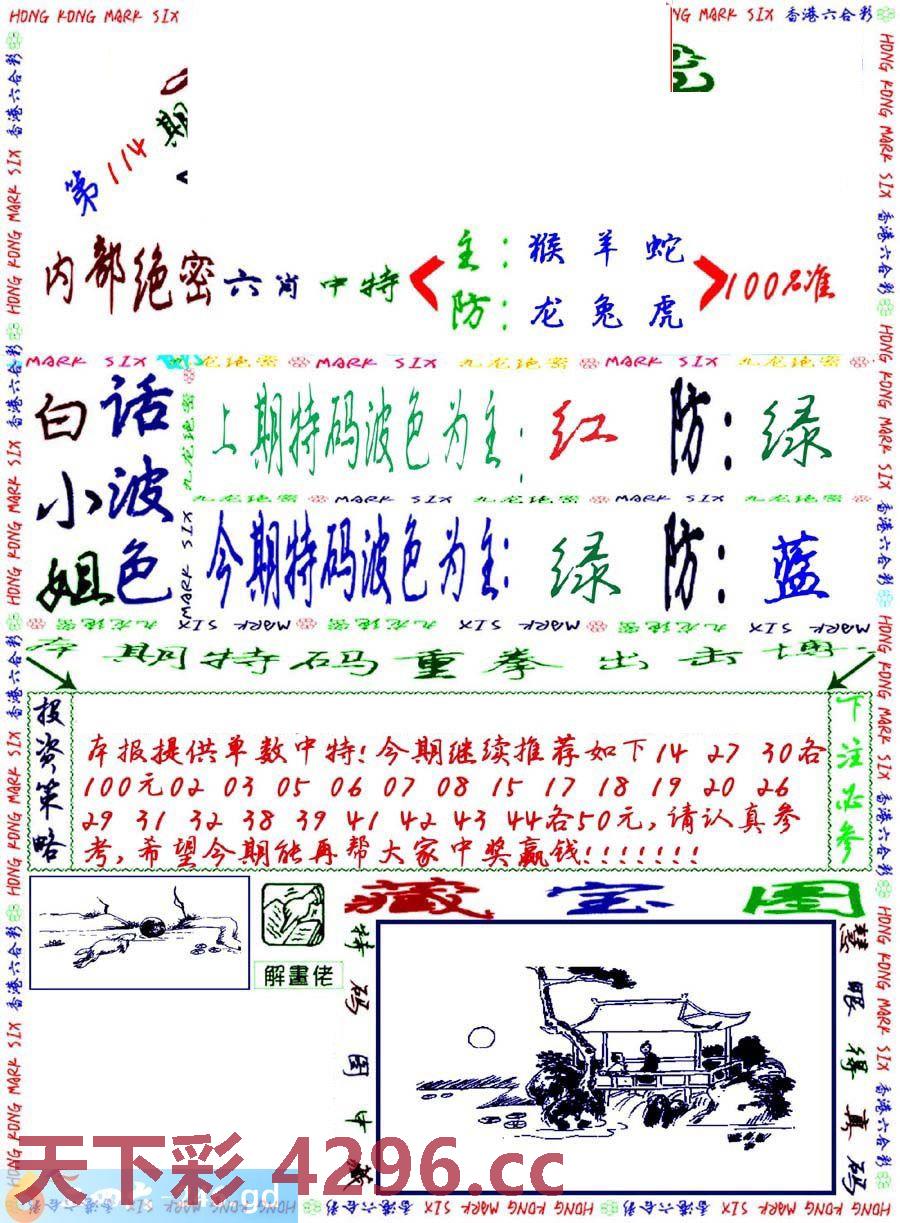 HONG KONG MARK SIX
NG MARK SIX 香港六合彩
第114期
内部绝密六肖中特
主：猴羊蛇
防：龙兔虎
100%准
MARK SIX 九龙绝密 MARK SIX 九龙绝密 MARK SIX 九龙绝密
白小姐
话波色
上期特码波色为主：红 防：绿
九龙绝密 MARK SIX 九龙绝密 MARK SIX 九龙绝密
今期特码波色为主：绿 防：蓝
九龙绝密 MARK SIX 九龙绝密 MARK SIX 九龙绝密 MARK SIX
本期特码重拳出击
投资策略
本报提供单数中特!今期继续推荐如下14 27 30各
100元02 03 05 06 07 08 15 17 18 19 20 26
29 31 32 38 39 41 42 43 44各50元,请认真参
考,希望今期能再帮大家中奖赢钱!!!!!!!
下注必参
解畫佬
藏宝图
特码图中藏
慧眼得真码
天下彩 4296.cc
gd
HONG KONG MARK SIX 香港六合彩